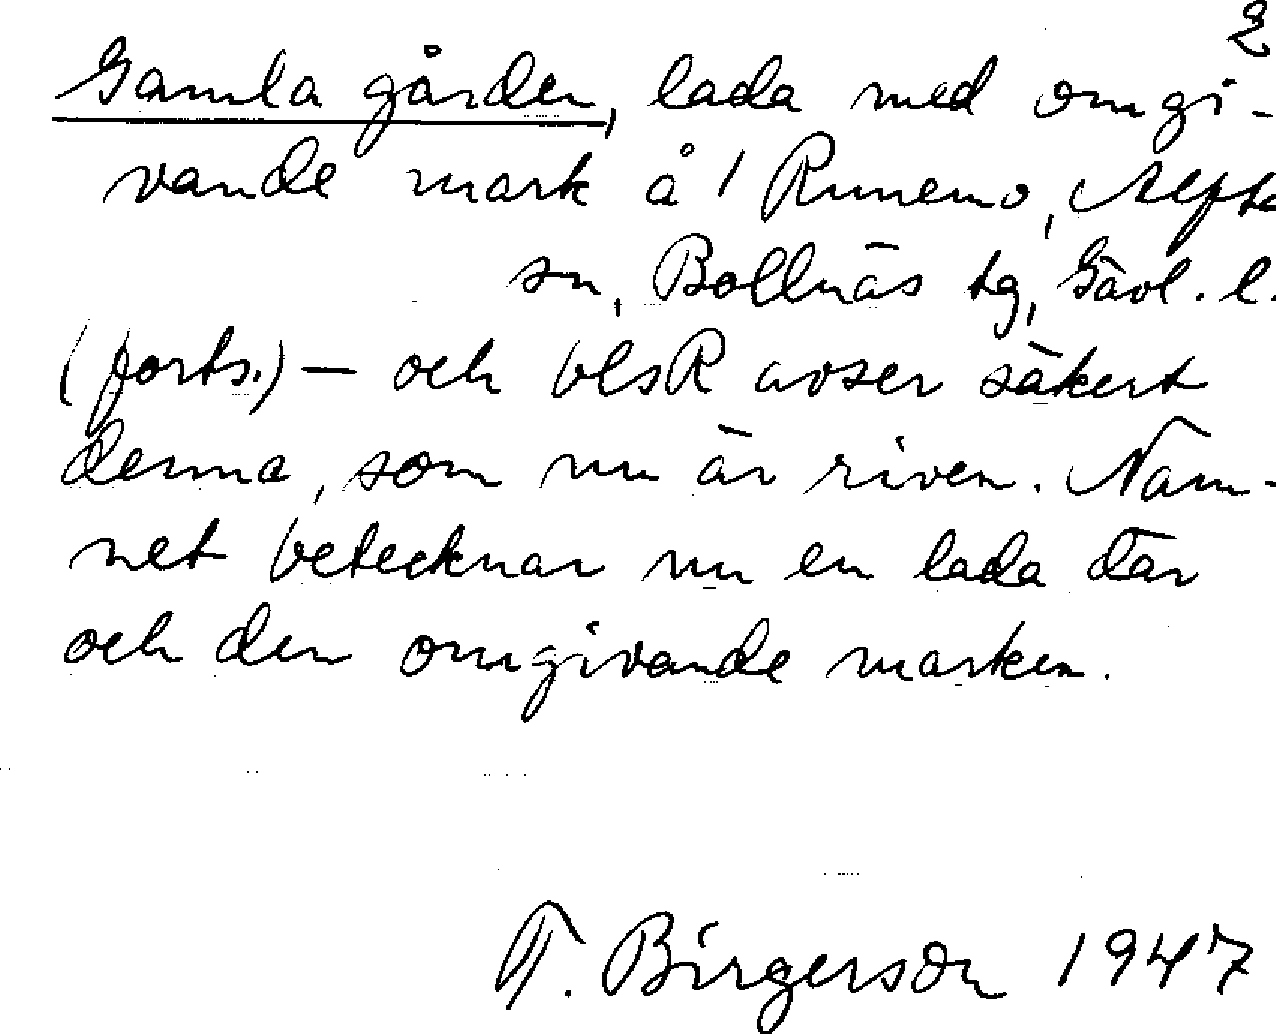 2
Gamla gården, lada med omgi-
vande mark å 1 Runemo, Alfta
sn, Bollnäs tg, Gävl. l.
(forts.) — och blsR avser säkert
denna, som nu är riven. Nam-
net betecknar nu en lada där
och den omgivande marken.
T. Birgerson 1947